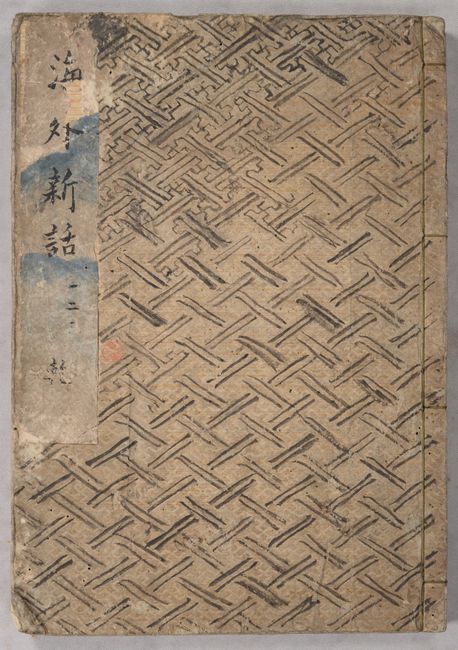 海外新話 一二